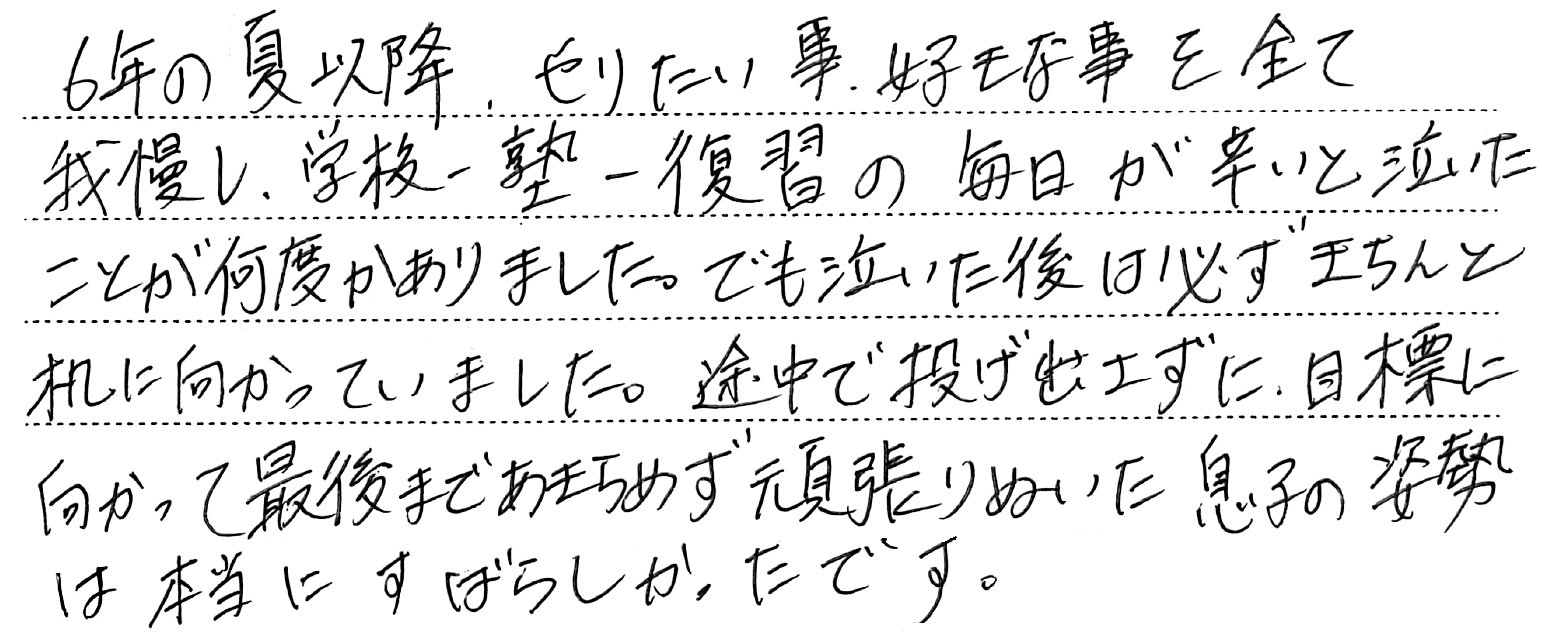 6年の夏以降、やりたい事、好きな事を全て
我慢し、学校-塾-復習の毎日が辛いと泣いた
ことが何度かありました。でも泣いた後は必ずきちんと
机に向かっていました。途中で投げ出さずに、目標に
向かって最後まであきらめず頑張りぬいた息子の姿勢
は本当にすばらしかったです。